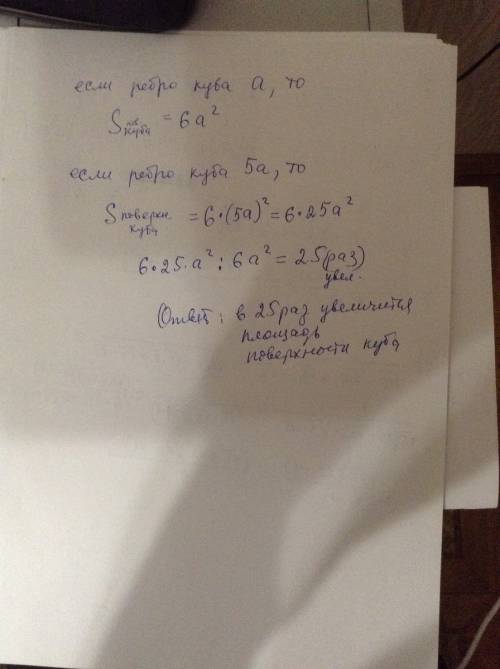 если ребро куба a, то
S пов. куба = 6a²
если ребро куба 5a, то
S поверхн. куба = 6·(5a)² = 6·25a²
6·25·a² : 6a² = 25(раз) увел.
Ответ: в 25 раз увеличится
площадь
поверхности куба